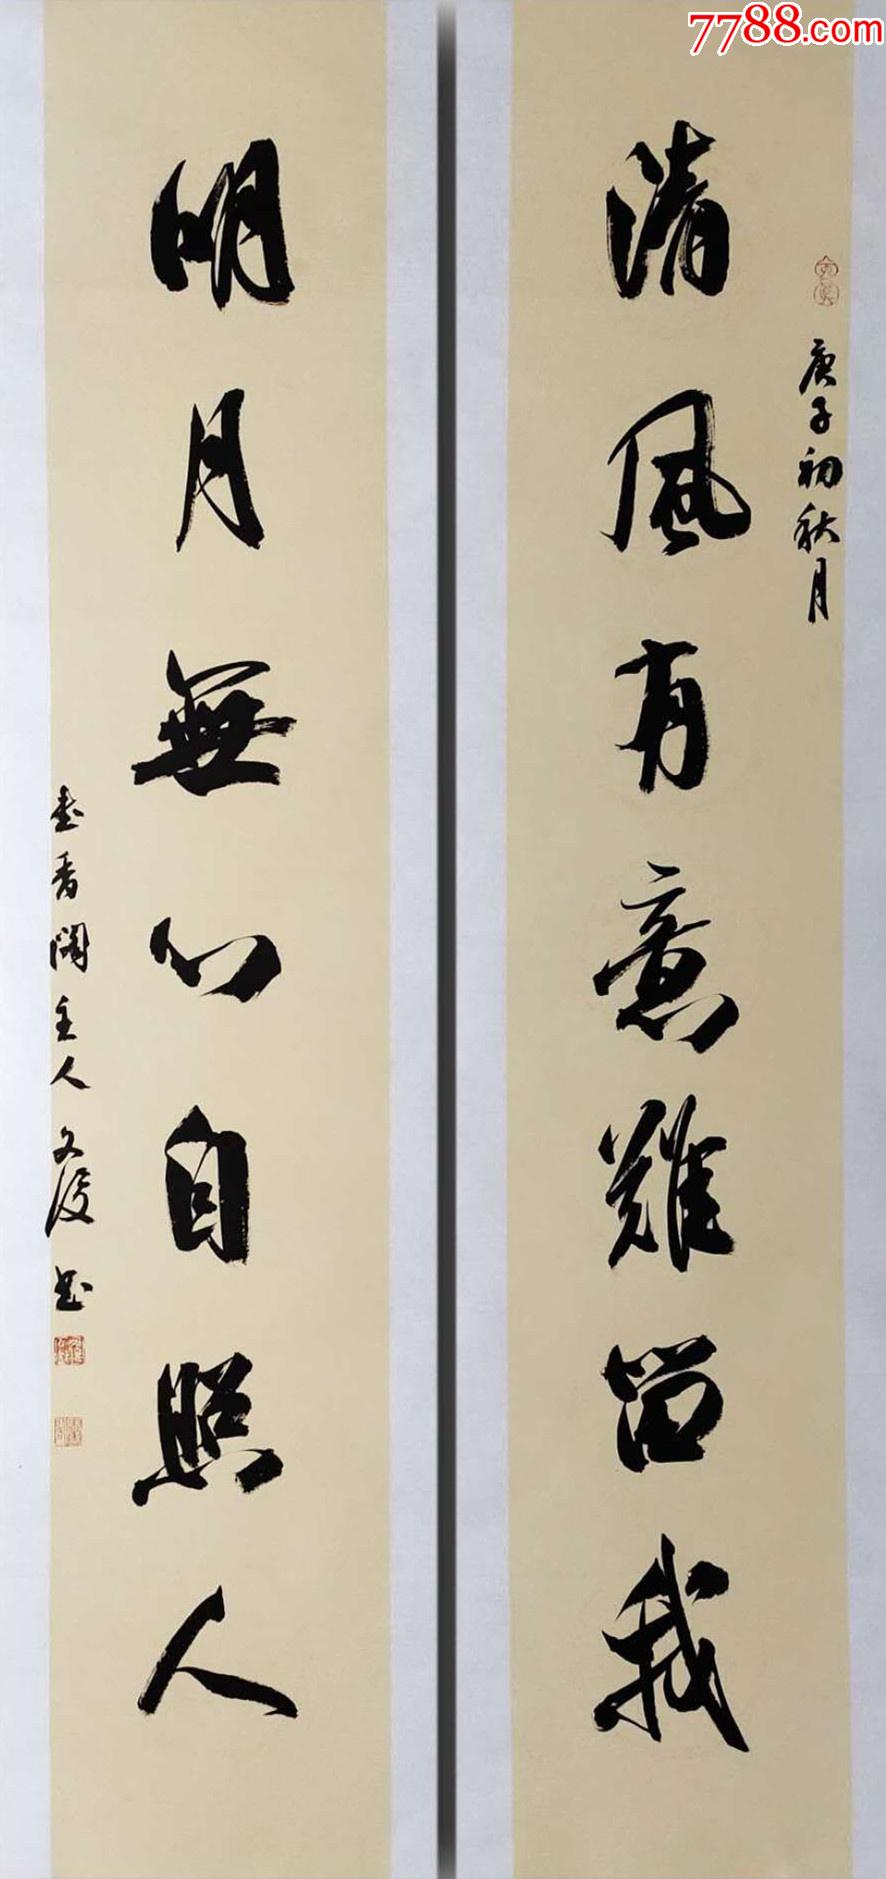 7788.com
庚子初秋月
清风有意難留我
明月無心自照人
書香閣主人文俊书